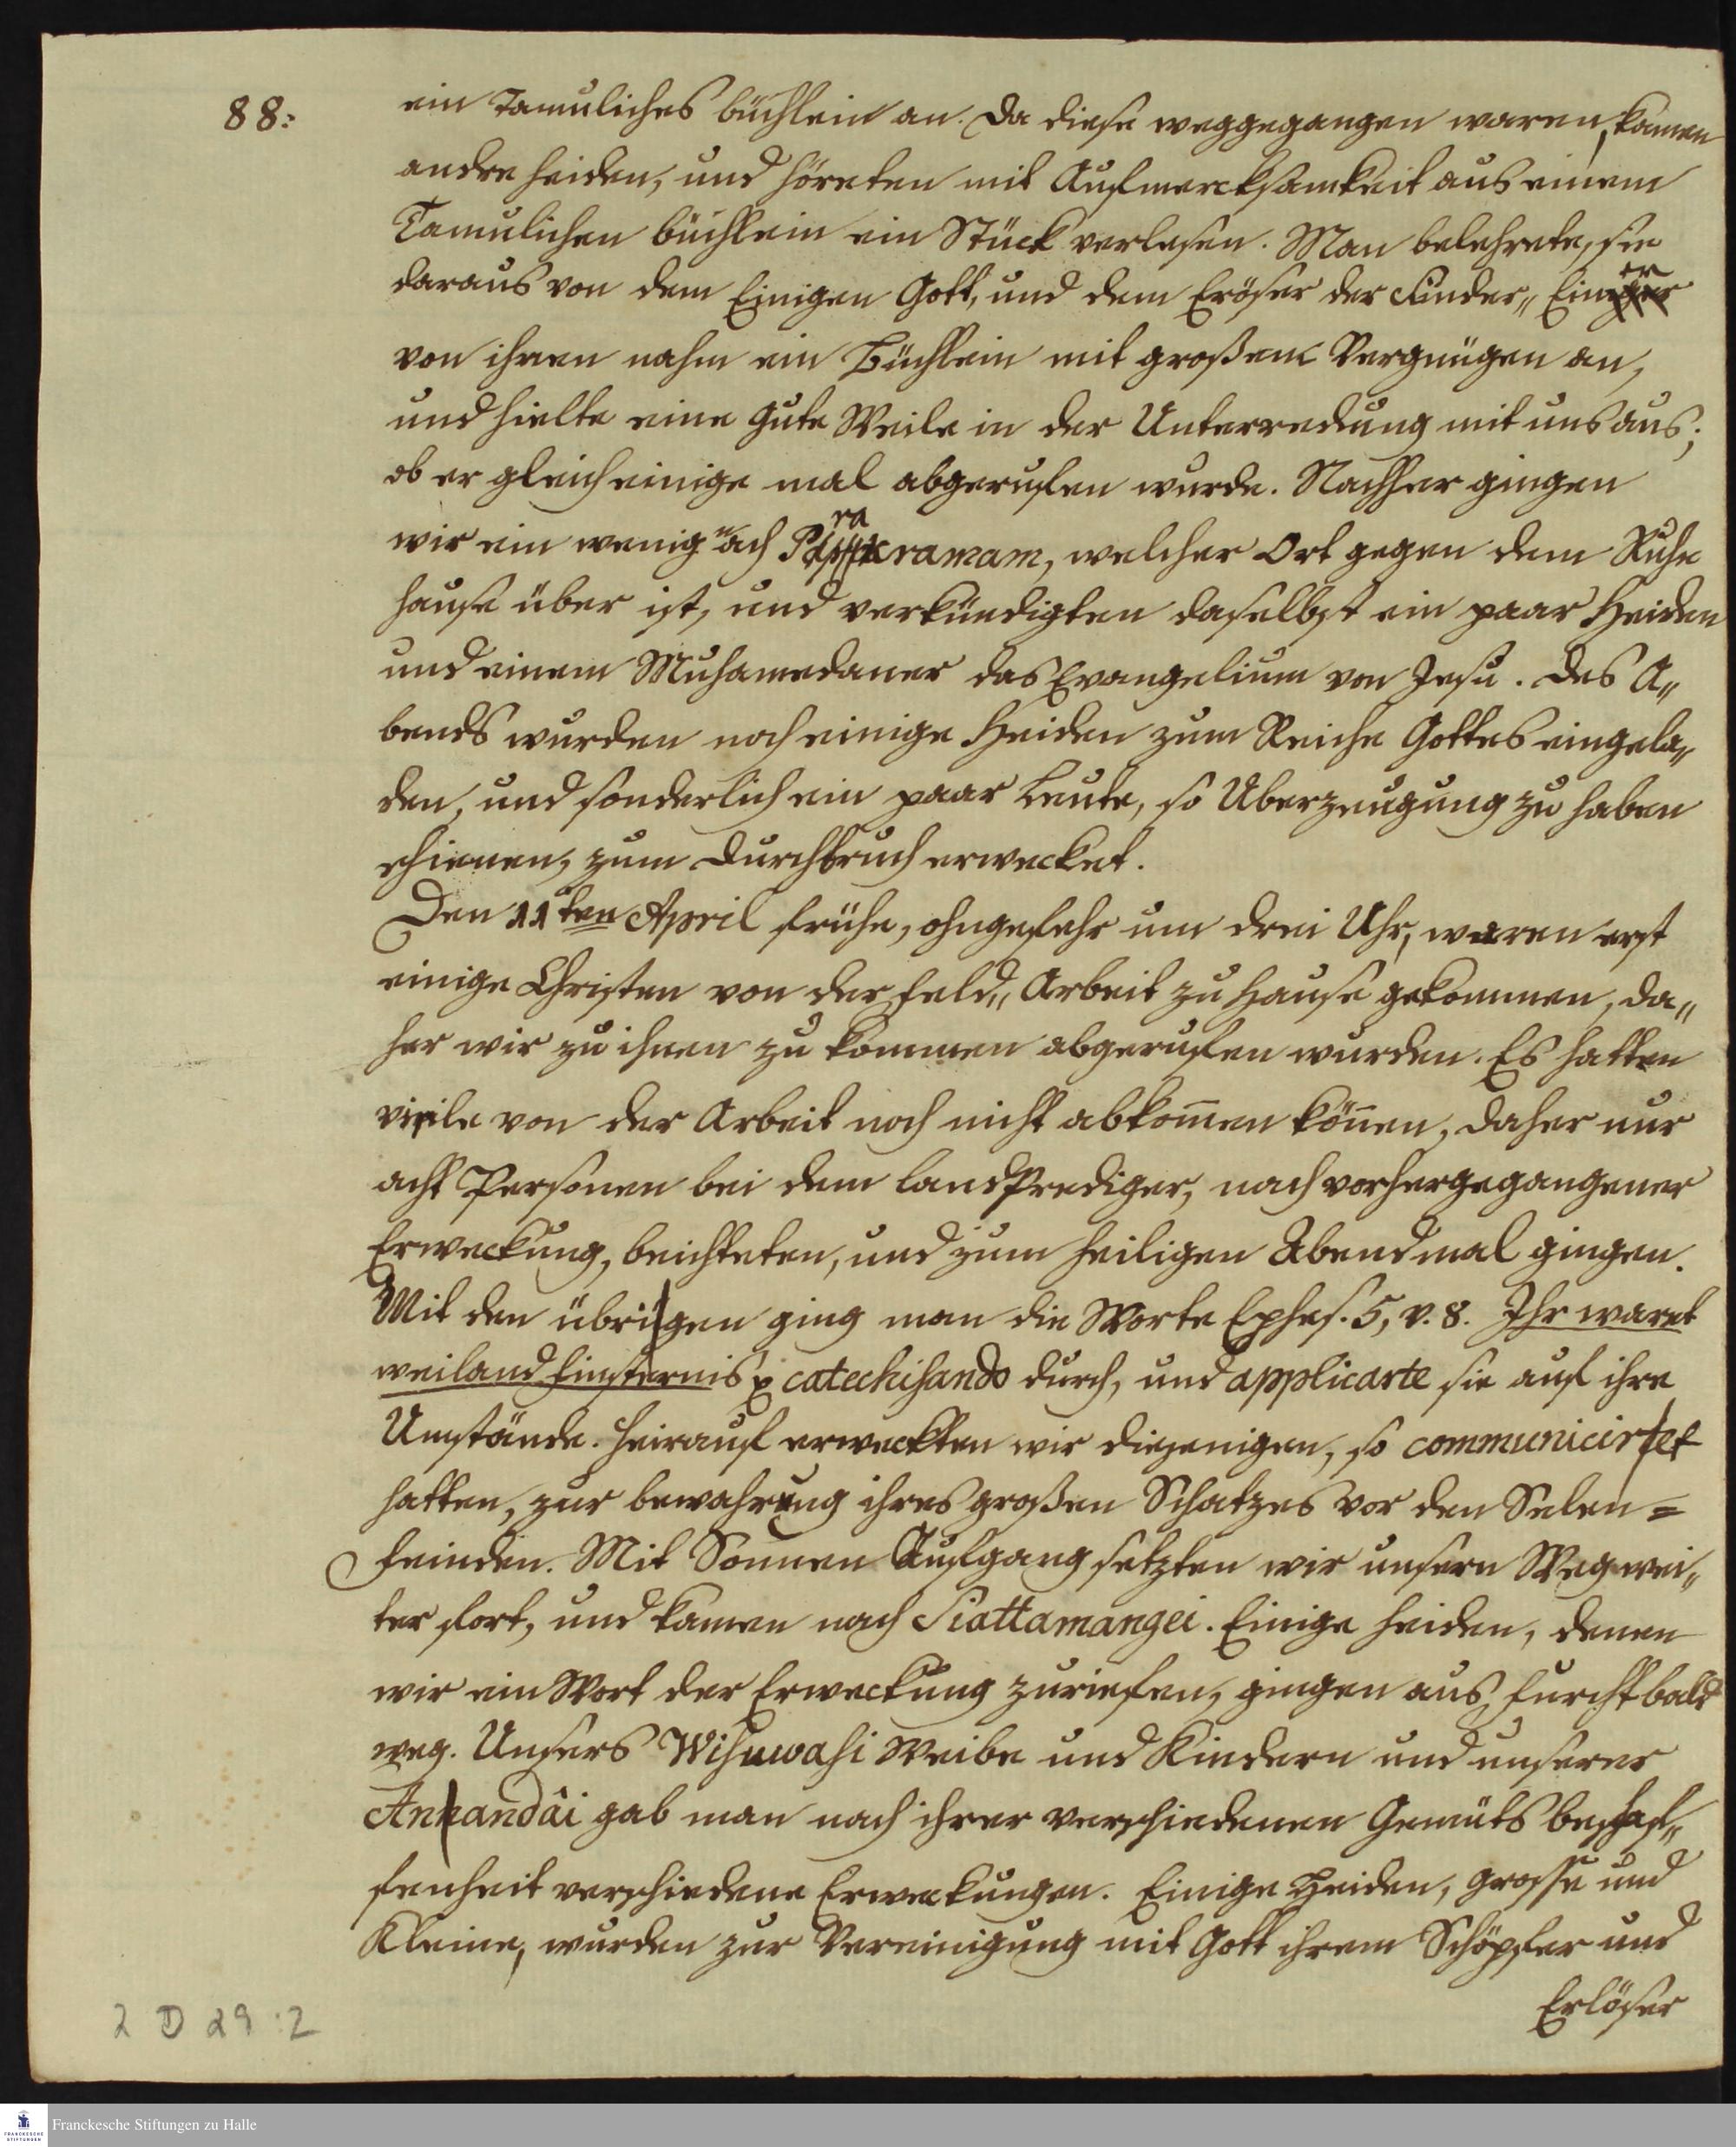 88:
ein Tamuliches büchlein an. Da diese weggegangen waren, kamen
andre heiden, und höreten mit Aufmercksamkeit aus einem
Tamulichen büchlein ein Stück verlesen. Man belehrete, sie
daraus von dem Einigen Gott, und dem Eröser der Sünder„ Einer
von ihnen nahm ein Büchlein mit großem Vergnügen an,
und hielte eine gute Weile in der Unterredung mit uns aus;
ob er gleich einige mal abgerufen wurde. Nachher gingen
wir ein wenig nach ramam, welcher Ort gegen dem Ruhe
hause über ist, und verkündigten daselbst ein paar Heiden
und einem Muhamedaner das Evangelium von Jesu. Des A„
bends wurden noch einige Heiden zum Reiche Gottes eingela„
den, und sonderlich ein paar Leute, so Uberzeugung zu haben
schienen, zum Durchbruch erwecket.
Den 11ten April frühe, ohngefehr um drei Uhr, waren erst
einige Christen von der Feld„ Arbeit zu Hause gekommen, da„
her wir zu ihnen zu kommen abgerufen wurden. Es hatten
viele von der Arbeit noch nicht abkom̄en kön̄en, daher nur
acht Personen bei dem landPrediger, nach vorhergegangener
Erweckung, beichteten, und zum heiligen Abendmal gingen.
Mit den übrigen ging man die Worte Ephes. 5, v. 8. Ihr waret
weiland finsternis catechisando durch, und applicarte sie auf ihre
Umstände. Heirauf erweckten wir diejenigen, so communiciret
hatten, zur bewahrung ihres großen Schatzes vor den Selen=
feinden. Mit Sonnen Aufgang setzten wir unsern Weg wei„
ter fort, und kamen nach Siattamangei. Einige heiden, denen
wir ein Wort der Erweckung zuriefen, gingen aus furcht bald
weg. Unsers Wisuwasi Weibe und Kindern und unserer
Anandâi gab man nach ihrer verschiedenen Gemüts beschaf„
fenheit verschiedene Erweckungen. Einige Heiden, grosse und
Kleine, wurden zur Vereinigung mit Gott ihrem Schöpfer und
Erlöser
2 D 29:2
FRANCKESCHE STIFTUNGEN
Franckesche Stiftungen zu Halle